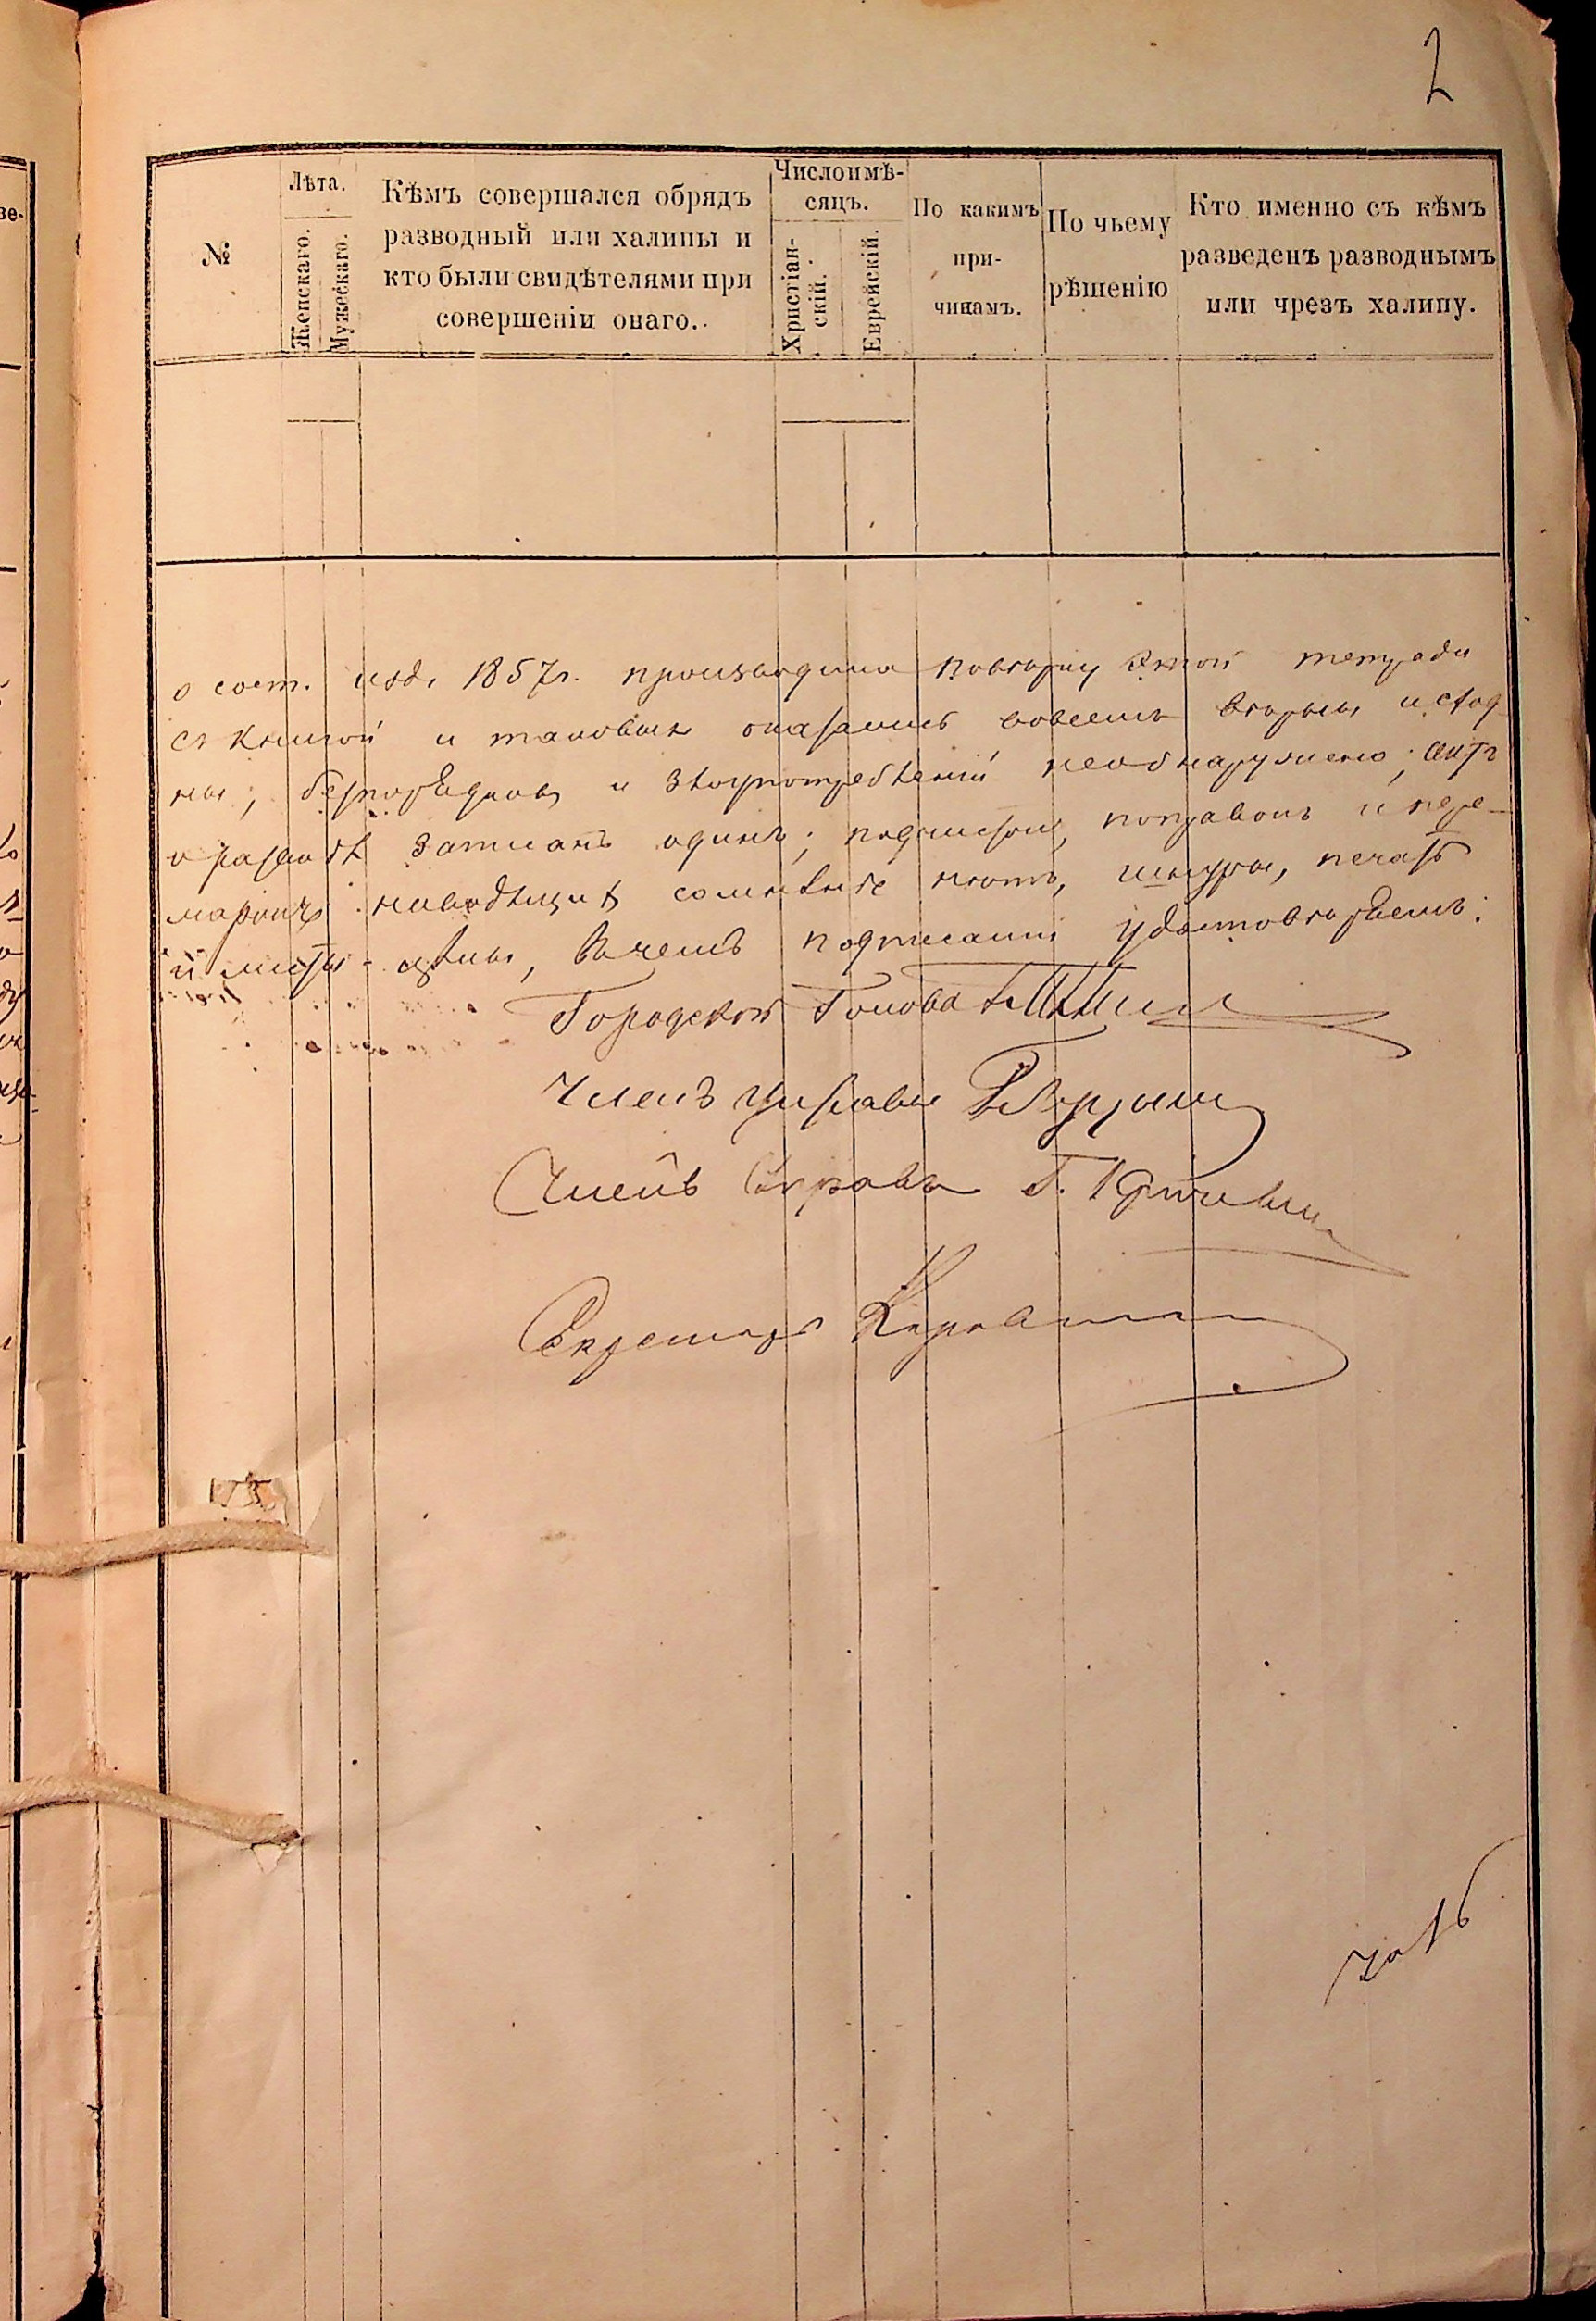 2
№
Лѣта.
Женскаго.
Мужескаго.
Кѣмъ совершался обрядъ
разводный или халицы и
кто были свидѣтелями при
совершеніи онаго.
Число и мѣ-
сяцъ.
Христіан-
скій.
Еврейскій.
По какимъ
при-
чинамъ.
По чьему
рѣшенію
Кто именно съ кѣмъ
разведенъ разводнымъ
или чрезъ халицу.
о сост. изд. 1857г. производила повѣрку этой тетради
съ книгой и таковыя оказались вовсемъ вѣрны и сход
ны; безпорядковъ и злоупотребленій необнаружено; актъ
о разводѣ записанъ одинъ; подчистокъ, поправокъ и пере-
марокъ наводящихъ сомнѣніе нѣтъ, шнуры, печать
и листы - цѣлы, въ чемъ подписами удостовѣряемъ:
Городской Голова
Членъ Управы
Членъ Управы Г.
Секретарь